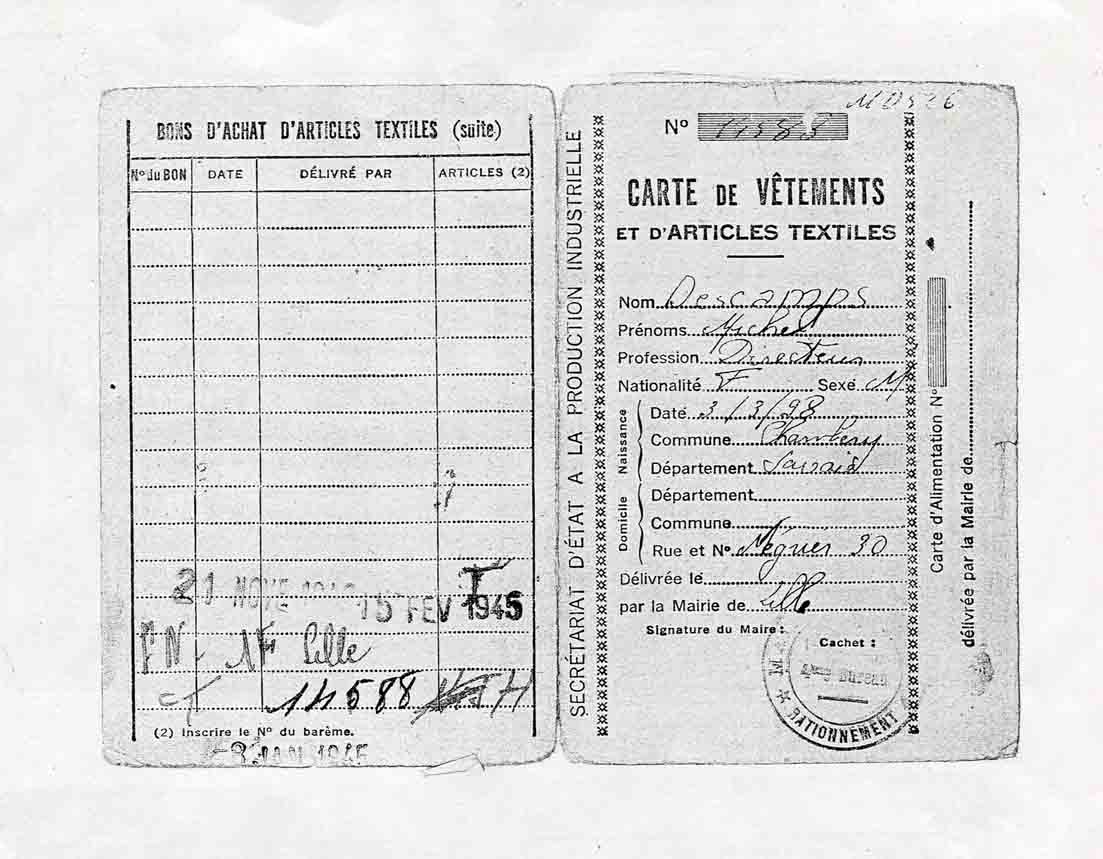 BONS D'ACHAT D'ARTICLES TEXTILES (suite)
N° du BON DATE DÉLIVRÉ PAR ARTICLES (2)
21 NOVE 15 FEV 1945
1F Lille
14588
(2) Inscrire le N° du barème.
-3 JAN 1945
SECRÉTARIAT D'ÉTAT A LA PRODUCTION INDUSTRIELLE
N°
CARTE DE VÊTEMENTS
ET D'ARTICLES TEXTILES
Nom Descamps
Prénoms Michel
Profession Directeur
Nationalité F Sexe M
Naissance
Date 3/3/98
Commune Chambery
Département Savoie
Domicile
Département
Commune
Rue et N° Négrier 30
Délivrée le
par la Mairie de Lille
Signature du Maire :
Cachet :
4me Bureau
RATIONNEMENT
Carte d'Alimentation N°
délivrée par la Mairie de